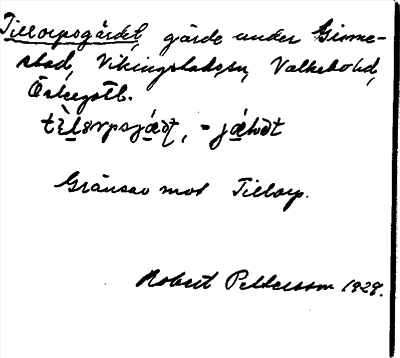 Tillorpsgärdet, gärde under Gimme-
stad, Vikingstads sn, Valkebo hd,
Östergötl.
Gränsar mot Tillorp.
Robert Pettersson 1929.